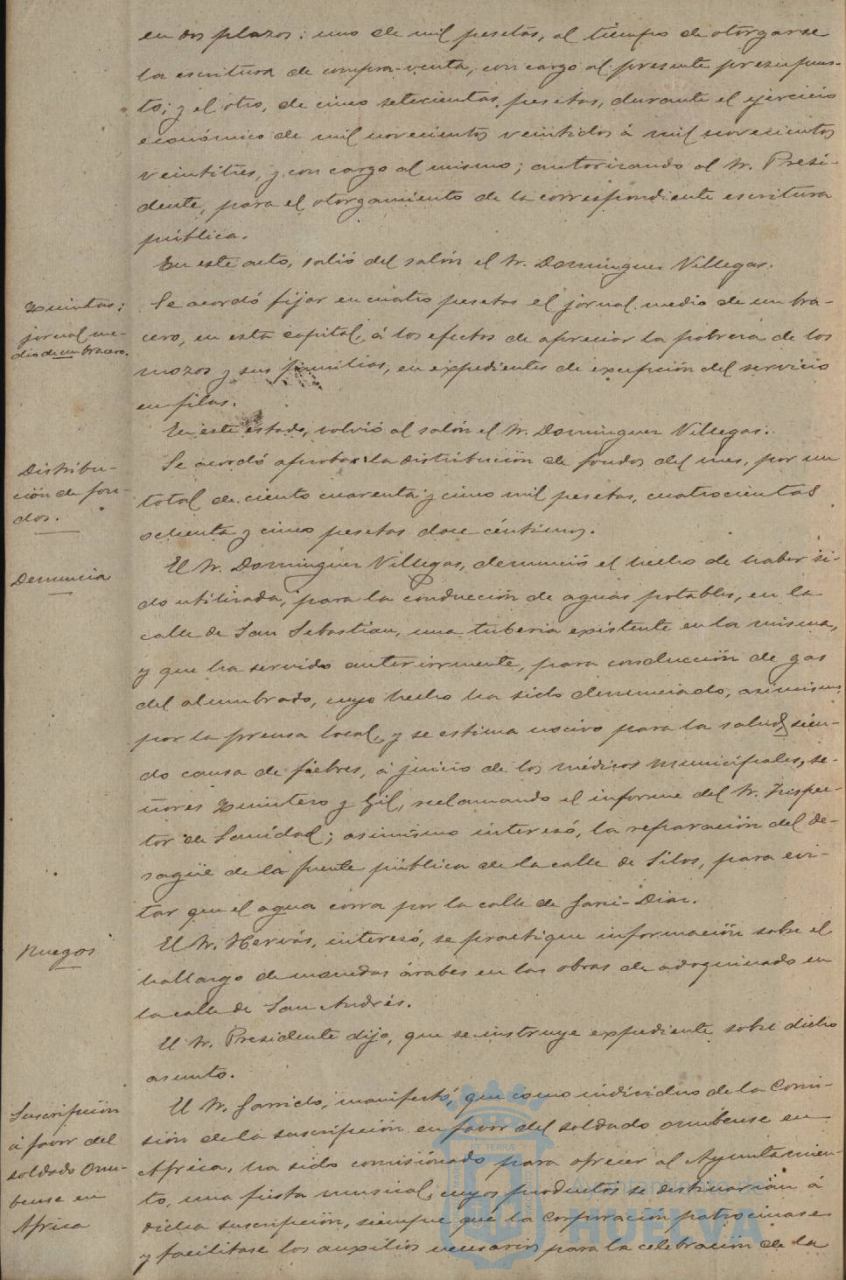 en dos plazos: uno de mil pesetas, al tiempo de otorgarse
la escritura de compra-venta, con cargo al presente presupues-
to; y el otro, de cinco setecientas pesetas, durante el ejercicio
económico de mil novecientos veintidos á mil novecientos
veintitres, y con cargo al mismo; autorizando al Sr. Presi-
dente, para el otorgamiento de la correspondiente escritura
pública.
En este acto, salió del salón el Sr. Dominguez Villegas.
Quintas;
jornal me-
dio de un bracero.
Se acordó fijar en cuatro pesetas el jornal medio de un bra-
cero, en esta capital, á los efectos de apreciar la pobreza de los
mozos y sus familias, en expedientes de excepción del servicio
en filas.
En este estado, volvió al salón el Sr. Dominguez Villegas.
Distribu-
ción de fon-
dos.
Se acordó aprobar la distribución de fondos del mes, por un
total de ciento cuarenta y cinco mil pesetas, cuatrocientas
ochenta y cinco pesetas doce céntimos.
Denuncia
El Sr. Dominguez Villegas, denunció el hecho de haber si-
do utilizada, para la conducción de aguas potables, en la
calle de San Sebastian, una tuberia existente en la misma,
y que ha servido anteriormente, para conducción de gas
del alumbrado, cuyo hecho ha sido denunciado, asimismo
por la prensa local, y se estima nocivo para la salud, sien-
do causa de fiebres, á juicio de los médicos municipales, se-
ñores Quintero y Gil, reclamando el informe del Sr. Inspec-
tor de Sanidad; asimismo interesó, la reparación del de-
sagüe de la fuente pública de la calle de Silos, para evi-
tar que el agua corra por la calle de Jani-Diaz.
Ruegos
El Sr. Hervás, interesó, se practique información sobre el
hallazgo de monedas árabes en las obras de adoquinado en
la calle de San Andrés.
El Sr. Presidente dijo, que se instruye expediente sobre dicho
asunto.
Suscripción
á favor del
soldado Onu-
bense en
Africa
El Sr. Garrido, manifestó, que como individuo de la Comi-
sión de la suscripción en favor del soldado onubense en
Africa, ha sido comisionado para ofrecer al Ayuntamien-
to, una fiesta musical, cuyos productos se destinarían á
dicha suscripción, siempre que la Corporación patrocinase
y facilitase los auxilios necesarios para la celebración de la
Ayuntamiento de
HUELVA